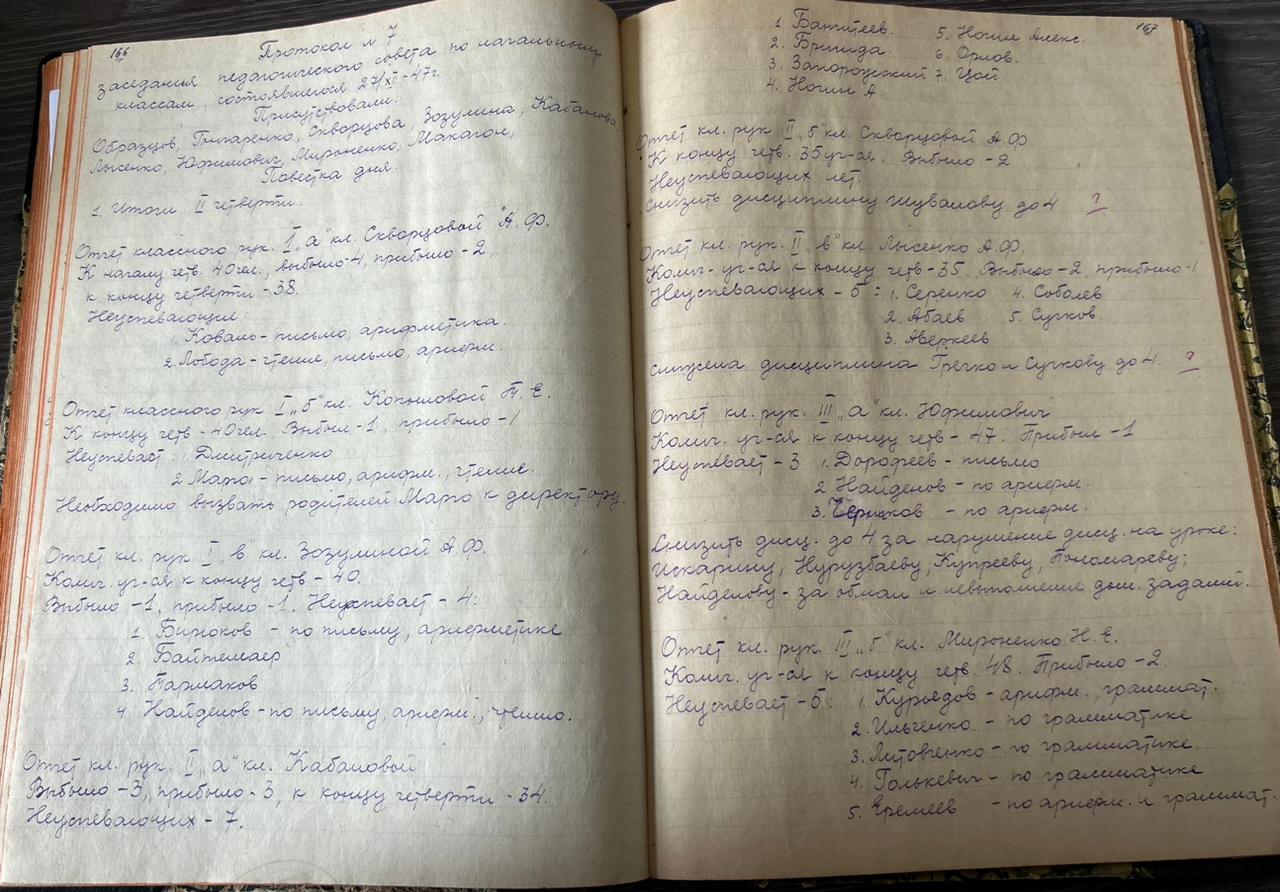 166
Протокол № 7
заседания педагогического совета по начальным
классам, состоявшегося 27/XII-47г.
Присутствовали:
Образцов, Гончаренко, Скворцова, Зозулина, Кабанова,
Лысенко, Юфимович, Мироненко, Макагон,
Повестка дня:
1. Итоги II четверти.
Отчет классного рук. I „а" кл. Скворцовой А.Ф.
К началу четв. 40 чел., выбыло-4, прибыло-2,
к концу четверти-38.
Неуспевающие:
1. Коваль-письмо, арифметика.
2. Лобода-чтение, письмо, арифм.
Отчет классного рук I „б" кл. Копыловой Т.Е.
К концу четв-40 чел. Выбыл-1, прибыло-1
Неуспевает: 1. Дмитриченко
2 Мато-письмо, арифм., чтение.
Необходимо вызвать родителей Мато к директору.
Отчет кл. рук I „в" кл. Зозулиной А.Ф.
Колич. уч-ся к концу четв-40.
Выбыло-1, прибыло-1. Неуспевает-4.
1. Бирюков-по письму, арифметике
2. Байтемаер
3. Тармаков
4 Найденов-по письму, арифм., чтению.
Отчет кл. рук. II „а" кл. Кабановой
Выбыло-3, прибыло-3, к концу четверти-34.
Неуспевающих-7.
167
1 Бантеев. 5. Ногин Алекс.
2. Бригида 6. Орлов.
3. Запорожский 7. Цой
4. Ногин А
Отчет кл. рук II „б" кл. Скворцовой А.Ф.
К концу четв. 35 уч-ся. Выбыло-2
Неуспевающих нет.
Снизить дисциплину Шувалову до 4 ?
Отчет кл. рук. II „в" кл. Лысенко А.Ф.
Колич-уч-ся к концу четв-35. Выбыло-2, прибыло-1
Неуспевающих-5: 1. Серенко 4. Соболев
2. Абаев 5. Сучков
3. Аверкеев
снижена дисциплина Гречко и Сучкову до 4. ?
Отчет кл. рук. III „а" кл. Юфимович
Колич. уч-ся к концу четв-47. Прибыл-1
Неуспевает-3 1. Дорофеев-письмо
2 Найденов-по арифм.
3. -по арифм.
Снизить дисц. до 4 за нарушение дисц. на уроке:
Искарину, Нурузбаеву, Купрееву, Пономареву;
Найденову-за обман и невыполнение дом. заданий.
Отчет кл. рук. III „б" кл. Мироненко Н.Е.
Колич. уч-ся к концу четв. 48. Прибыло-2.
Неуспевает-5: 1. Курьедов-арифм., граммат.
2. Ильченко-по грамматике
3. Литовченко-по грамматике.
4. Голькевич-по грамматике
5. Еремеев-по арифм. и граммат.